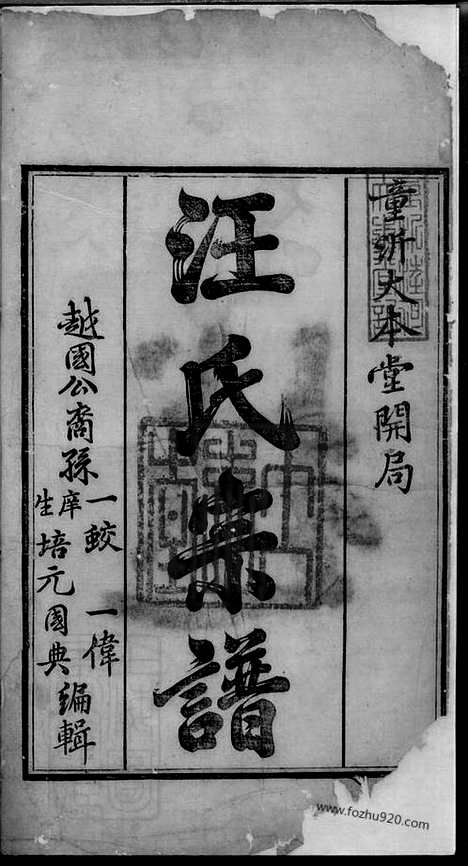 童圻大本堂開局
汪氏宗譜
越國公裔孫
一蛟 一偉
庠生 培元 國典
編輯
www.fozhu920.com